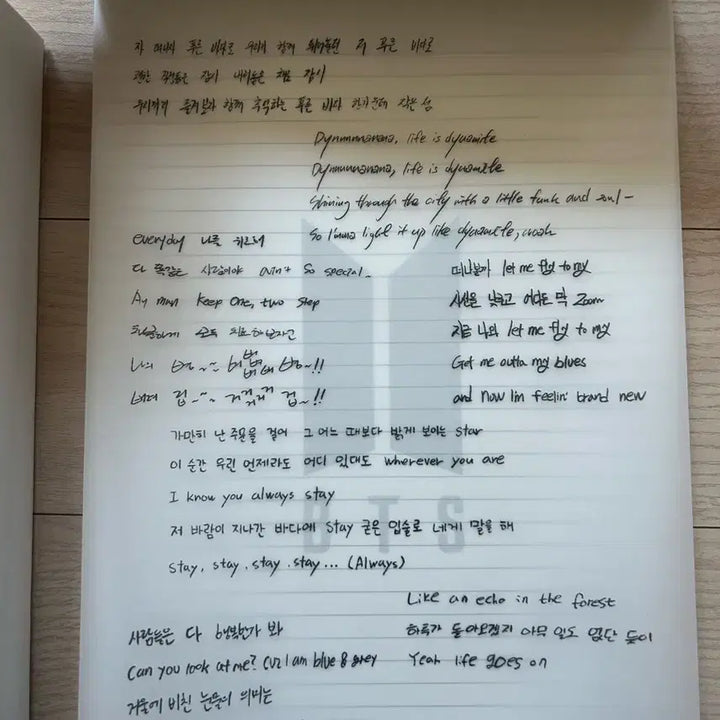 자 떠나자 푸른 바다로 우리가 함께 뛰어놀던 저 푸른 바다로
괜한 걱정들은 잠시 내려놓은 챔 잠시
우리끼리 즐겨보자 함께 추억하는 푸른 바다 한가운데 작은 섬
Dynnnnnanana, life is dynamite
Dynnnnnanana, life is dynamite
Shining through the city with a little funk and soul-
So I'mma light it up like dynamite, woah
everyday 나를
다 똑같은 사람이야 ain't so special
Ay man keep one, two step
모두
가만히 난 주문을 걸어 그 어느 때보다 밝게 보이는 star
이 순간 우린 언제라도 어디 있대도 wherever you are
I know you always stay
저 바람이 지나간 바다에 Stay 굳은 입술로 네게 말을 해
stay, stay, stay, stay... (Always)
사람들은 다 행복한가 봐
Can you look at me? Cuz I am blue & grey
거울에 비친 눈물의 의미는
떠나볼까 let me fly to my
시선을 낮추고 어디든 막 Zoom
지금 나의 let me fly to my
Get me outta my blues
and now I'm feelin' brand new
Like an echo in the forest
하루가 돌아오겠지 아무 일도 없단 듯이
Yeah life goes on
BTS